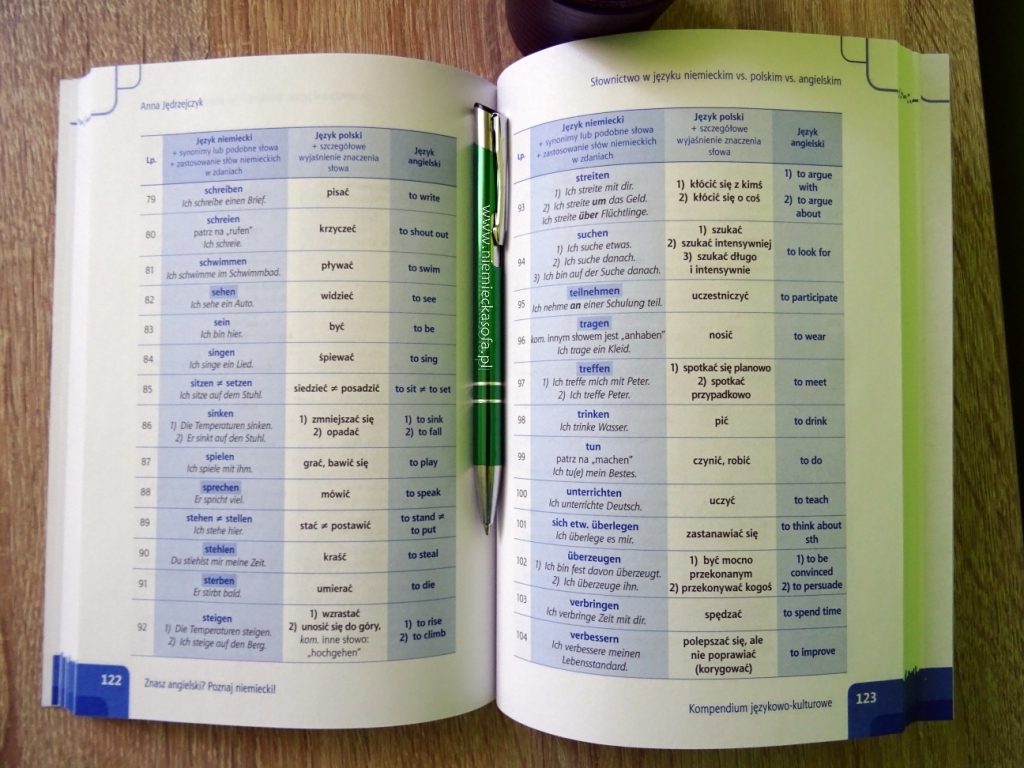 Anna Jędrzejczyk
Lp.
Język niemiecki
+ synonimy lub podobne słowa
+ zastosowanie słów niemieckich
w zdaniach
Język polski
+ szczegółowe
wyjaśnienie znaczenia
słowa
Język
angielski
79
schreiben
Ich schreibe einen Brief.
pisać
to write
80
schreien
patrz na „rufen”
Ich schreie.
krzyczeć
to shout out
81
schwimmen
Ich schwimme im Schwimmbad.
pływać
to swim
82
sehen
Ich sehe ein Auto.
widzieć
to see
83
sein
Ich bin hier.
być
to be
84
singen
Ich singe ein Lied.
śpiewać
to sing
85
sitzen ≠ setzen
Ich sitze auf dem Stuhl.
siedzieć ≠ posadzić
to sit ≠ to set
86
sinken
1) Die Temperaturen sinken.
2) Er sinkt auf den Stuhl.
1) zmniejszać się
2) opadać
1) to sink
2) to fall
87
spielen
Ich spiele mit ihm.
grać, bawić się
to play
88
sprechen
Er spricht viel.
mówić
to speak
89
stehen ≠ stellen
Ich stehe hier.
stać ≠ postawić
to stand ≠
to put
90
stehlen
Du stiehlst mir meine Zeit.
kraść
to steal
91
sterben
Er stirbt bald.
umierać
to die
92
steigen
1) Die Temperaturen steigen.
2) Ich steige auf den Berg.
1) wzrastać
2) unosić się do góry,
kom. inne słowo:
„hochgehen”
1) to rise
2) to climb
122
Znasz angielski? Poznaj niemiecki!
www.niemieckasofa.pl
Słownictwo w języku niemieckim vs. polskim vs. angielskim
Lp.
Język niemiecki
+ synonimy lub podobne słowa
+ zastosowanie słów niemieckich
w zdaniach
Język polski
+ szczegółowe
wyjaśnienie znaczenia
słowa
Język
angielski
93
streiten
1) Ich streite mit dir.
2) Ich streite um das Geld.
Ich streite über Flüchtlinge.
1) kłócić się z kimś
2) kłócić się o coś
1) to argue
with
2) to argue
about
94
suchen
1) Ich suche etwas.
2) Ich suche danach.
3) Ich bin auf der Suche danach.
1) szukać
2) szukać intensywniej
3) szukać długo
i intensywnie
to look for
95
teilnehmen
Ich nehme an einer Schulung teil.
uczestniczyć
to participate
96
tragen
kom. innym słowem jest „anhaben”
Ich trage ein Kleid.
nosić
to wear
97
treffen
1) Ich treffe mich mit Peter.
2) Ich treffe Peter.
1) spotkać się planowo
2) spotkać
przypadkowo
to meet
98
trinken
Ich trinke Wasser.
pić
to drink
99
tun
patrz na „machen”
Ich tu(e) mein Bestes.
czynić, robić
to do
100
unterrichten
Ich unterrichte Deutsch.
uczyć
to teach
101
sich etw. überlegen
Ich überlege es mir.
zastanawiać się
to think about
sth
102
überzeugen
1) Ich bin fest davon überzeugt.
2) Ich überzeuge ihn.
1) być mocno
przekonanym
2) przekonywać kogoś
1) to be
convinced
2) to persuade
103
verbringen
Ich verbringe Zeit mit dir.
spędzać
to spend time
104
verbessern
Ich verbessere meinen
Lebensstandard.
polepszać się, ale
nie poprawiać
(korygować)
to improve
Kompendium językowo-kulturowe
123